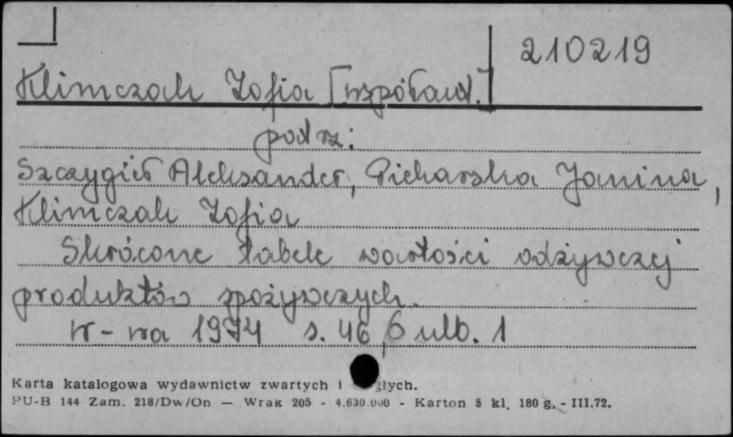 210219
Klimczak Zofia [współaut.]
podrz:
Szczygieł Aleksander, Piekarska Janina,
Klimczak Zofia
Skrócone tabele wartości odżywczej
produktów spożywczych.
W-wa 1974 s. 46, 6 ulb. 1
Karta katalogowa wydawnictw zwartych i
PU-B 144 Zam. 218/Dw/On — Wrak 205 - 4.630.000 - Karton 5 kl. 180 g. - III.72.